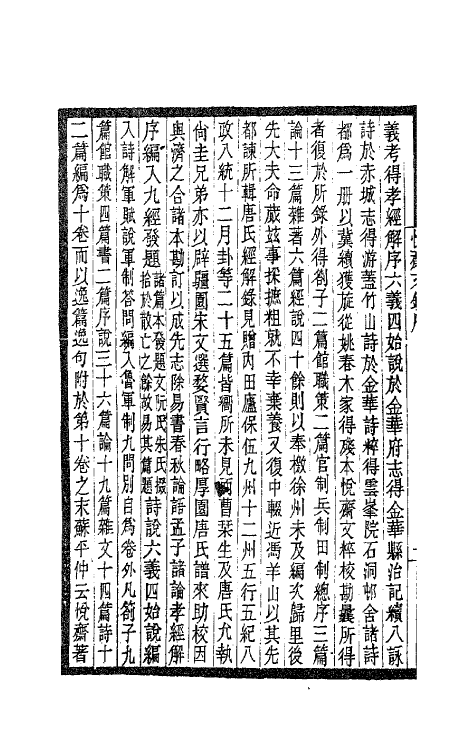 義考得孝經解序六義四始說於金華府志得金華縣治記續八詠
詩於赤城志得游蓋竹山詩於金華詩粹得雲峯院石洞邨舍諸詩
都爲一册以冀續獲旋從姚春木家得殘本悅齋文粹校勘曩所得
者復於所錄外得劄子二篇館職策二篇官制兵制田制總序三篇
論十三篇雜著六篇經說四十餘則以奉檄徐州未及編次歸里後
先大夫命蕆玆事採摭粗就不幸棄養又復中輟近馮羊山以其先
都諫所輯唐氏經解錄見贈內田廬保伍九州十二州五行五紀八
政入統十二月卦等二十五篇皆嚮所未見而曹栞生及唐氏允執
尙圭兄弟亦以辟疆園宋文選婺賢言行略厚園唐氏譜來助校因
與濟之合諸本勘訂以成先志除易書春秋論語孟子諸論孝經解
序編入九經發題諸篇本發題文阮氏朱氏掇拾於散亡之餘故易其篇題詩說六義四始說編
入詩解軍賦說軍制答問編入魯軍制九問別自爲卷外凡劄子九
篇館職策四篇書二篇序說三十六篇論十九篇雜文十四篇詩十
二篇編爲十卷而以逸篇逸句附於第十卷之末蘇平仲云悅齋著